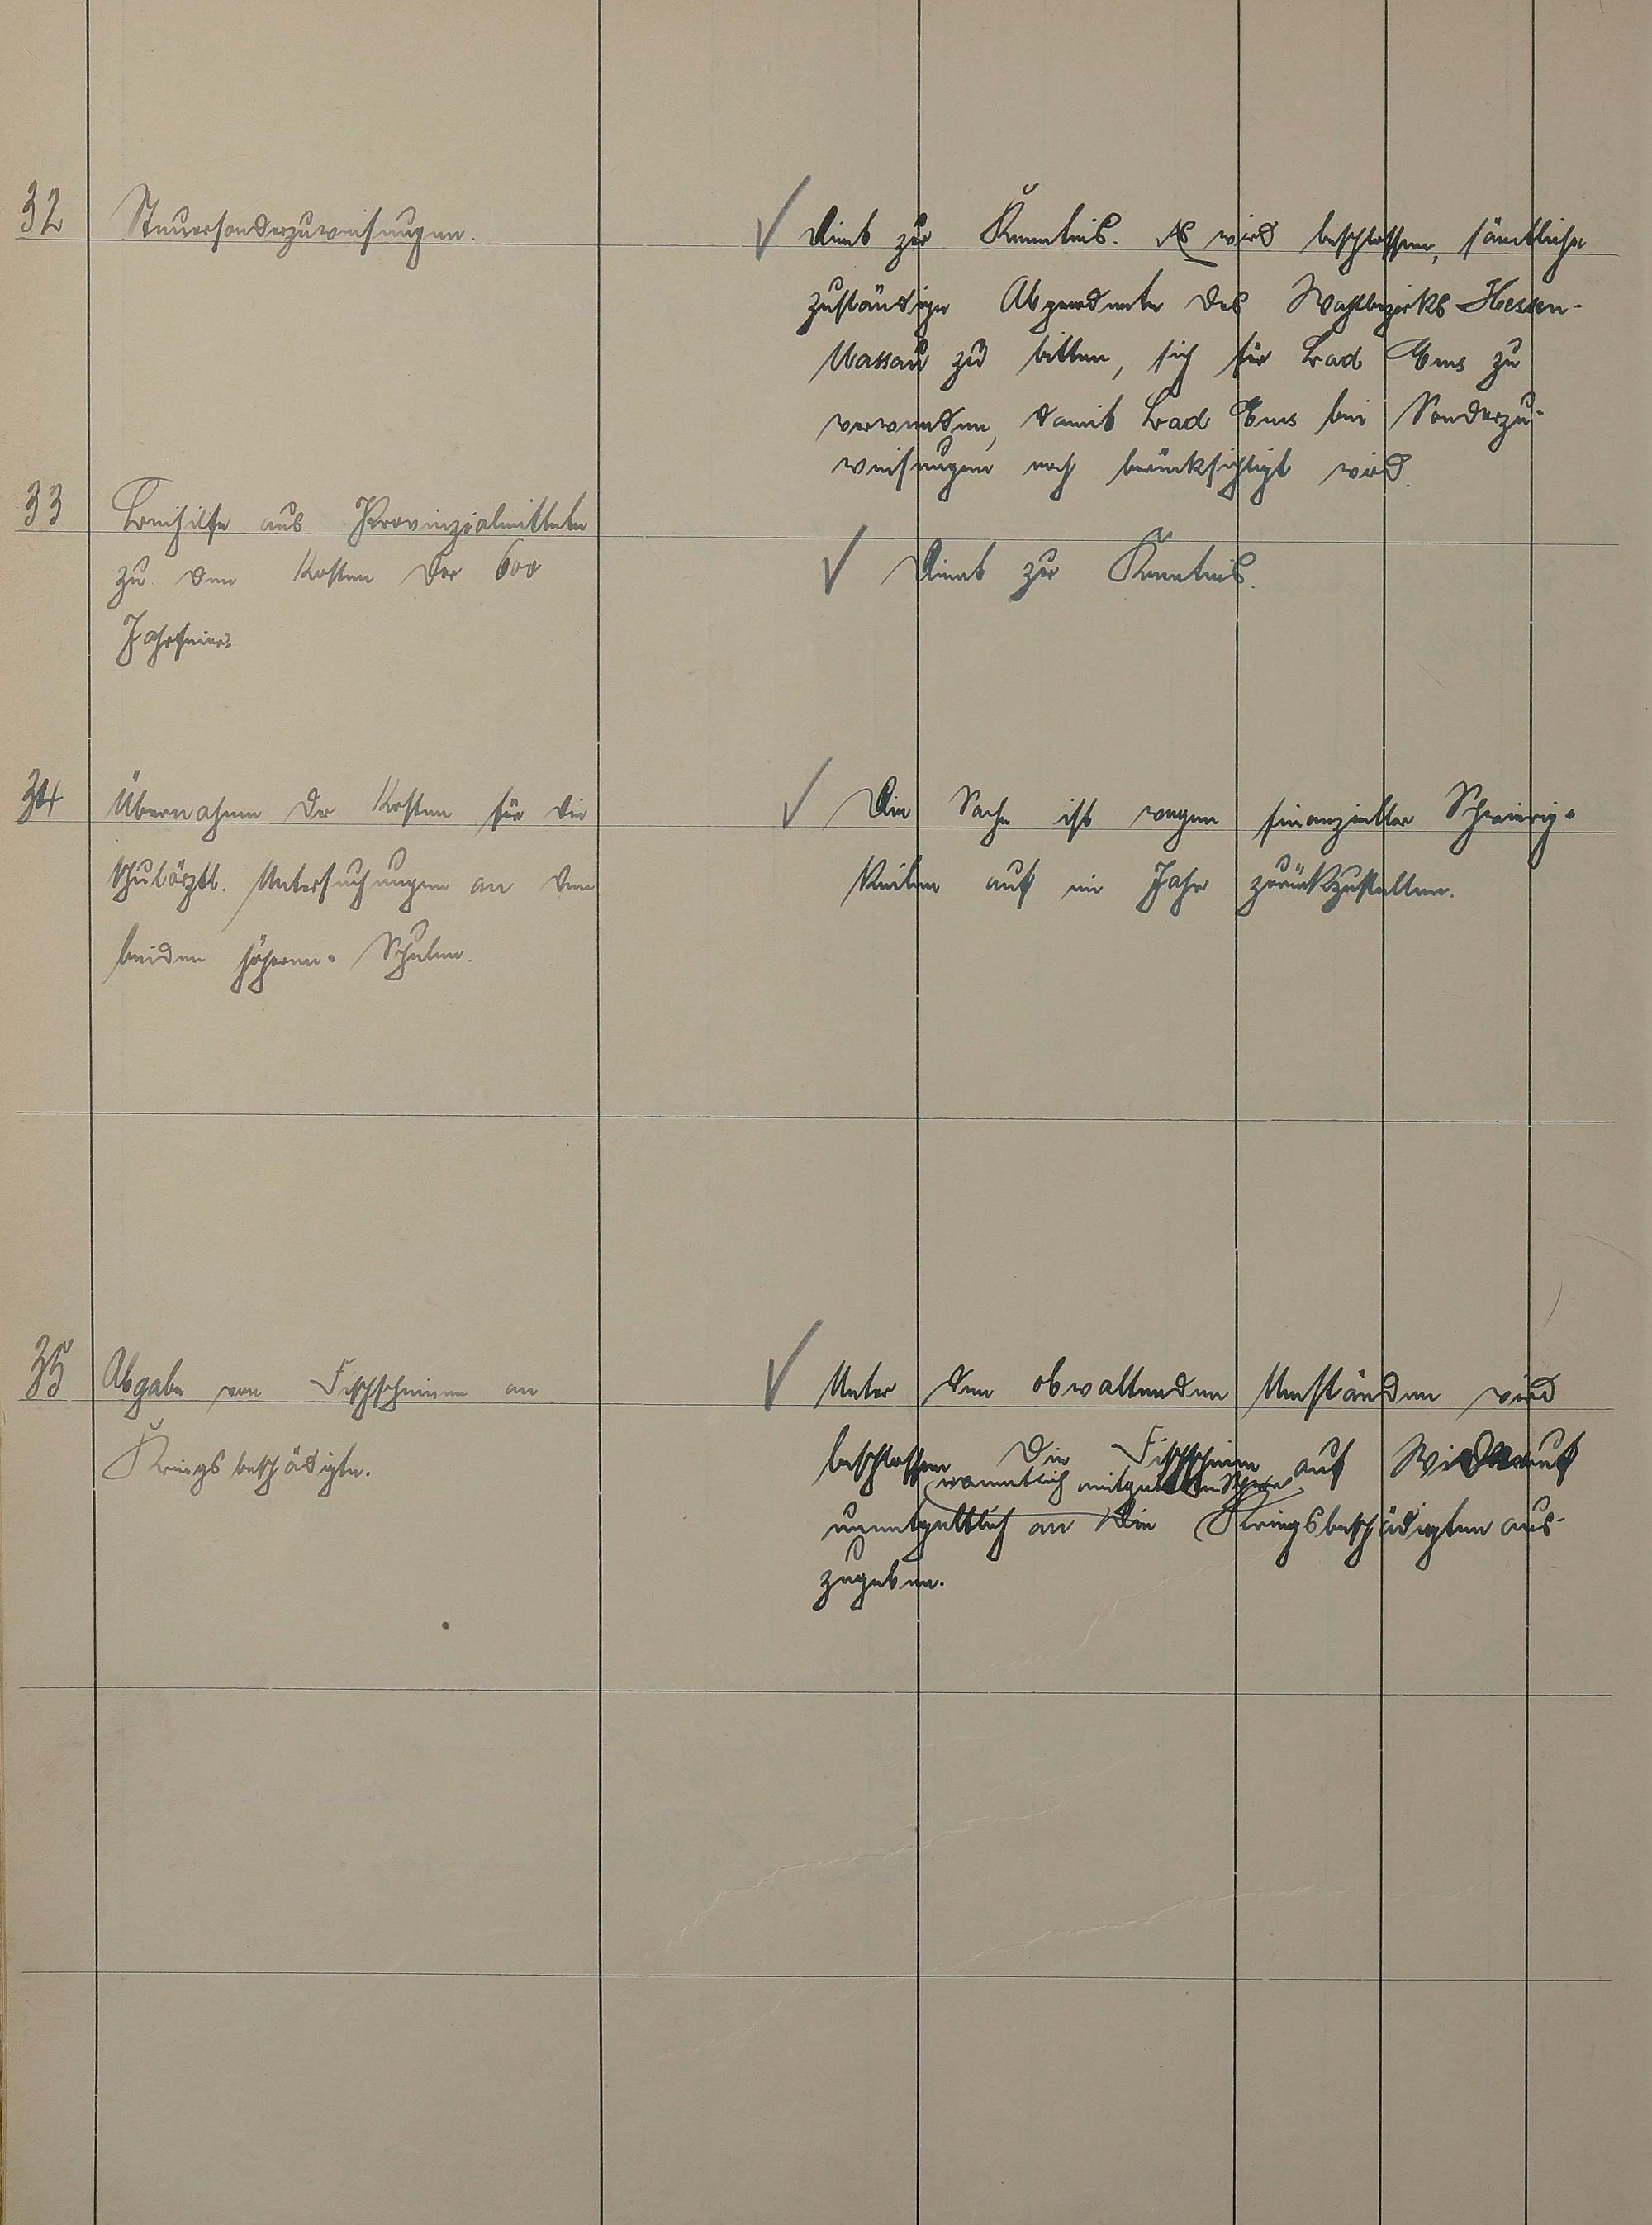 32
Steuersonderzuweisungen.
✓ Dient zur Kenntnis. Es wird beschlossen, sämtliche
zuständige Abgeordnete des Wahlbezirks Hessen-
Nassau zu bitten, sich für Bad Ems zu
verwenden, damit Bad Ems bei Sonderzu-
weisungen noch berücksichtigt wird.
33
Beihilfe aus Provinzialmitteln
zu den Kosten der 600
Jahrfeier.
✓ Dient zur Kenntnis.
34
Übernahme der Kosten für die
schulärztl. Untersuchungen an den
beiden höheren Schulen.
✓ Die Sache ist wegen finanzieller Schwierig-
keiten auf ein Jahr zurückzustellen.
35
Abgabe von Fischscheinen an
Kriegsbeschädigte.
✓ Unter den obwaltenden Umständen wird
beschlossen die Fischscheine auf Widerruf
unentgeltlich an die Kriegsbeschädigten aus-
zugeben.